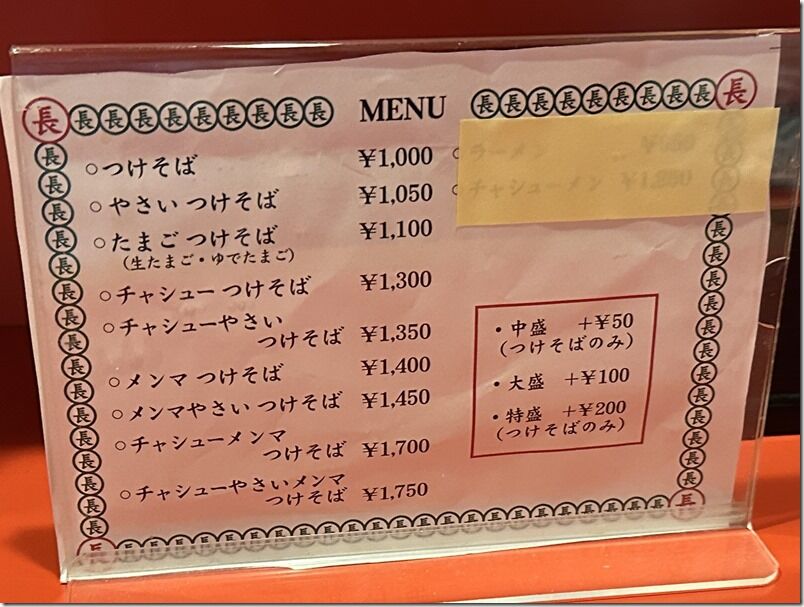 MENU
○つけそば ¥1,000
○やさい つけそば ¥1,050
○たまご つけそば ¥1,100
（生たまご・ゆでたまご）
○チャシュー つけそば ¥1,300
○チャシューやさい
つけそば ¥1,350
○メンマ つけそば ¥1,400
○メンマやさい つけそば ¥1,450
○チャシューメンマ
つけそば ¥1,700
○チャシューやさいメンマ
つけそば ¥1,750
ラーメン
チャシューメン
・中盛 +¥50
（つけそばのみ）
・大盛 +¥100
・特盛 +¥200
（つけそばのみ）